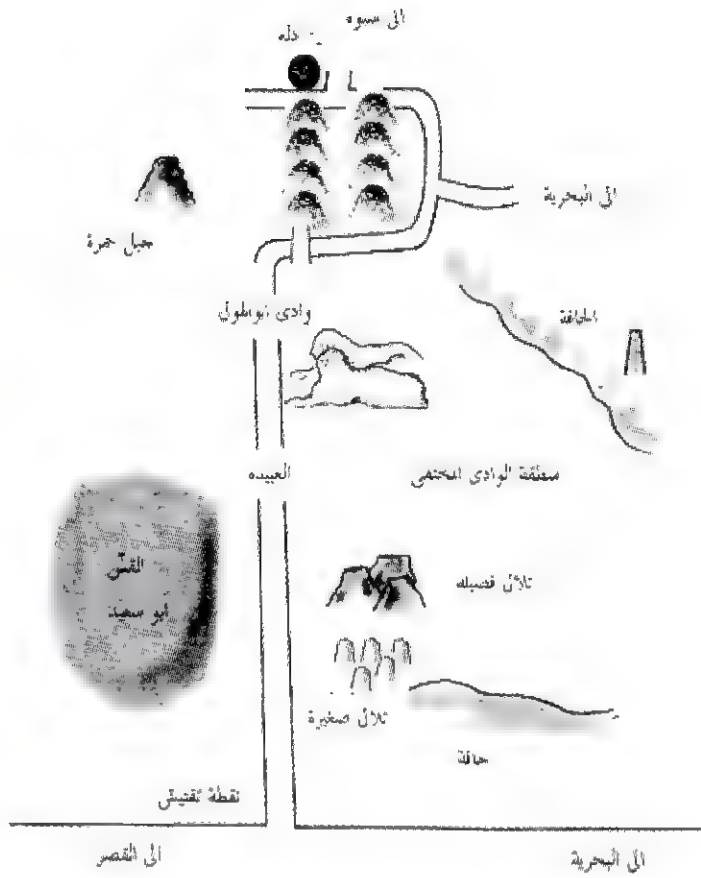 الى سيوه
الى البحرية
جبل حمرة
وادى ابوالهول
الحافة
العبيده
منطقة الوادى المختفى
القس
أبو سعيد
تلال فضيله
تلال صغيرة
حافة
نقطة تفتيش
الى القصر
الى البحرية